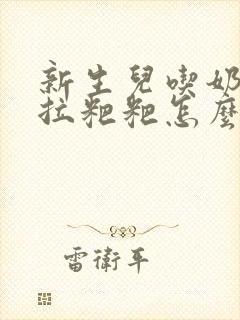 新生兒喫奶
拉粑粑怎麼
雷衛平